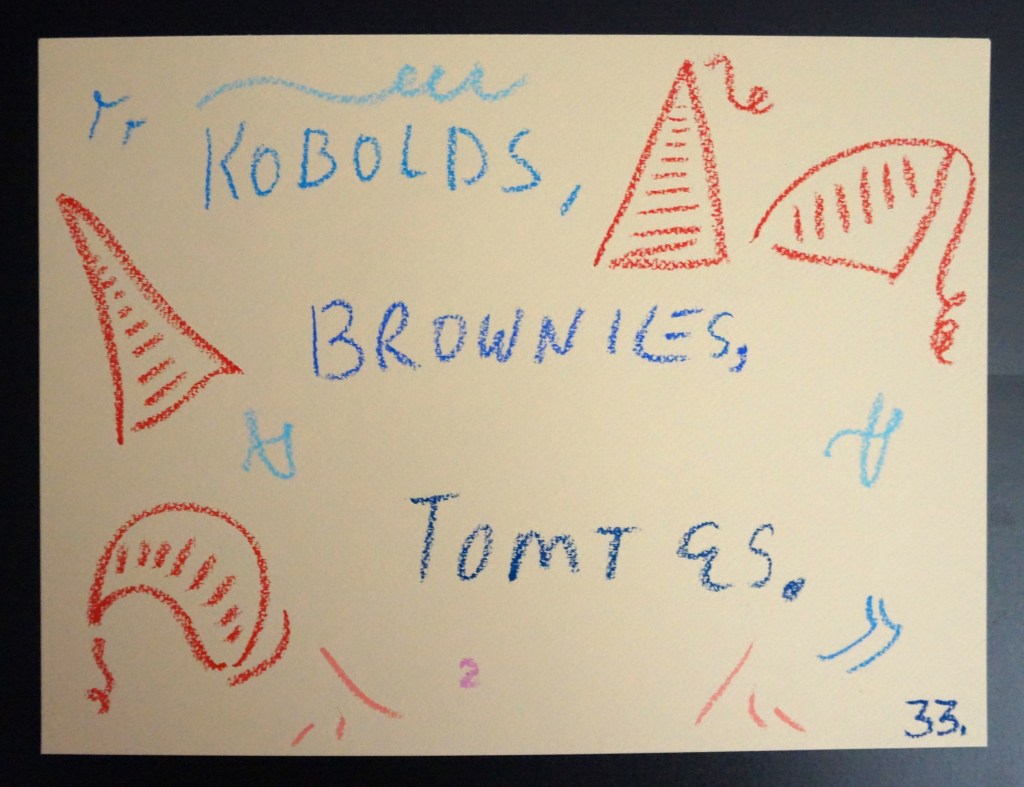 KOBOLDS,
BROWNIES,
TOMTES.
2
33.